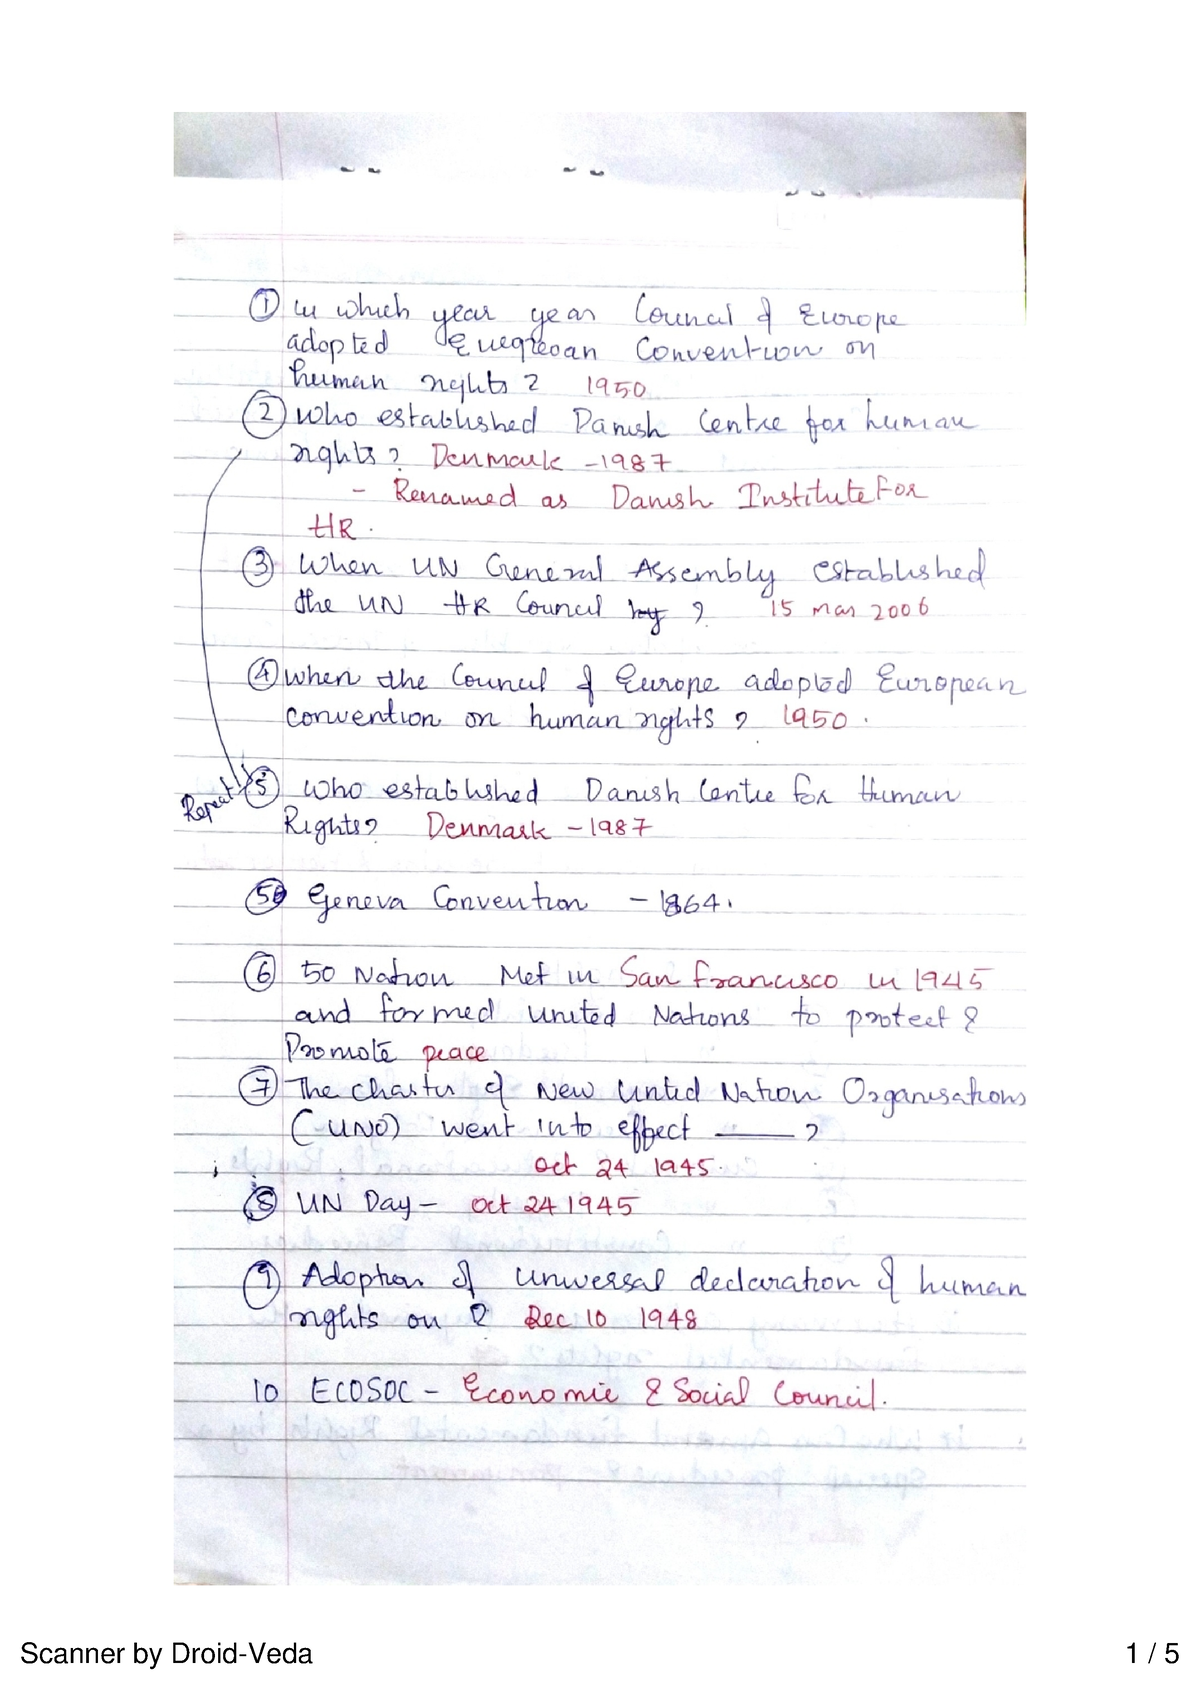 ① In which year year Council of Europe
adopted European Convention on
human rights ? 1950
② Who established Danish Centre for human
rights ? Denmark - 1987
- Renamed as Danish Institute For
HR.
③ When UN General Assembly established
the UN HR Council by ? 15 Mar 2006
④ When the Council of Europe adopted European
convention on human rights ? 1950.
Repeat ⑤ Who established Danish Centre for Human
Rights? Denmark - 1987
⑤ Geneva Convention - 1864.
⑥ 50 Nation Met in San Francisco in 1945
and formed united Nations to protect &
Promote peace
⑦ The Charter of New United Nation Organisations
(UNO) went into effect ___ ?
Oct 24 1945.
⑧ UN Day - Oct 24 1945
⑨ Adoption of universal declaration of human
rights on ? Dec 10 1948
10 ECOSOC - Economic & Social Council.
Scanner by Droid-Veda
1 / 5